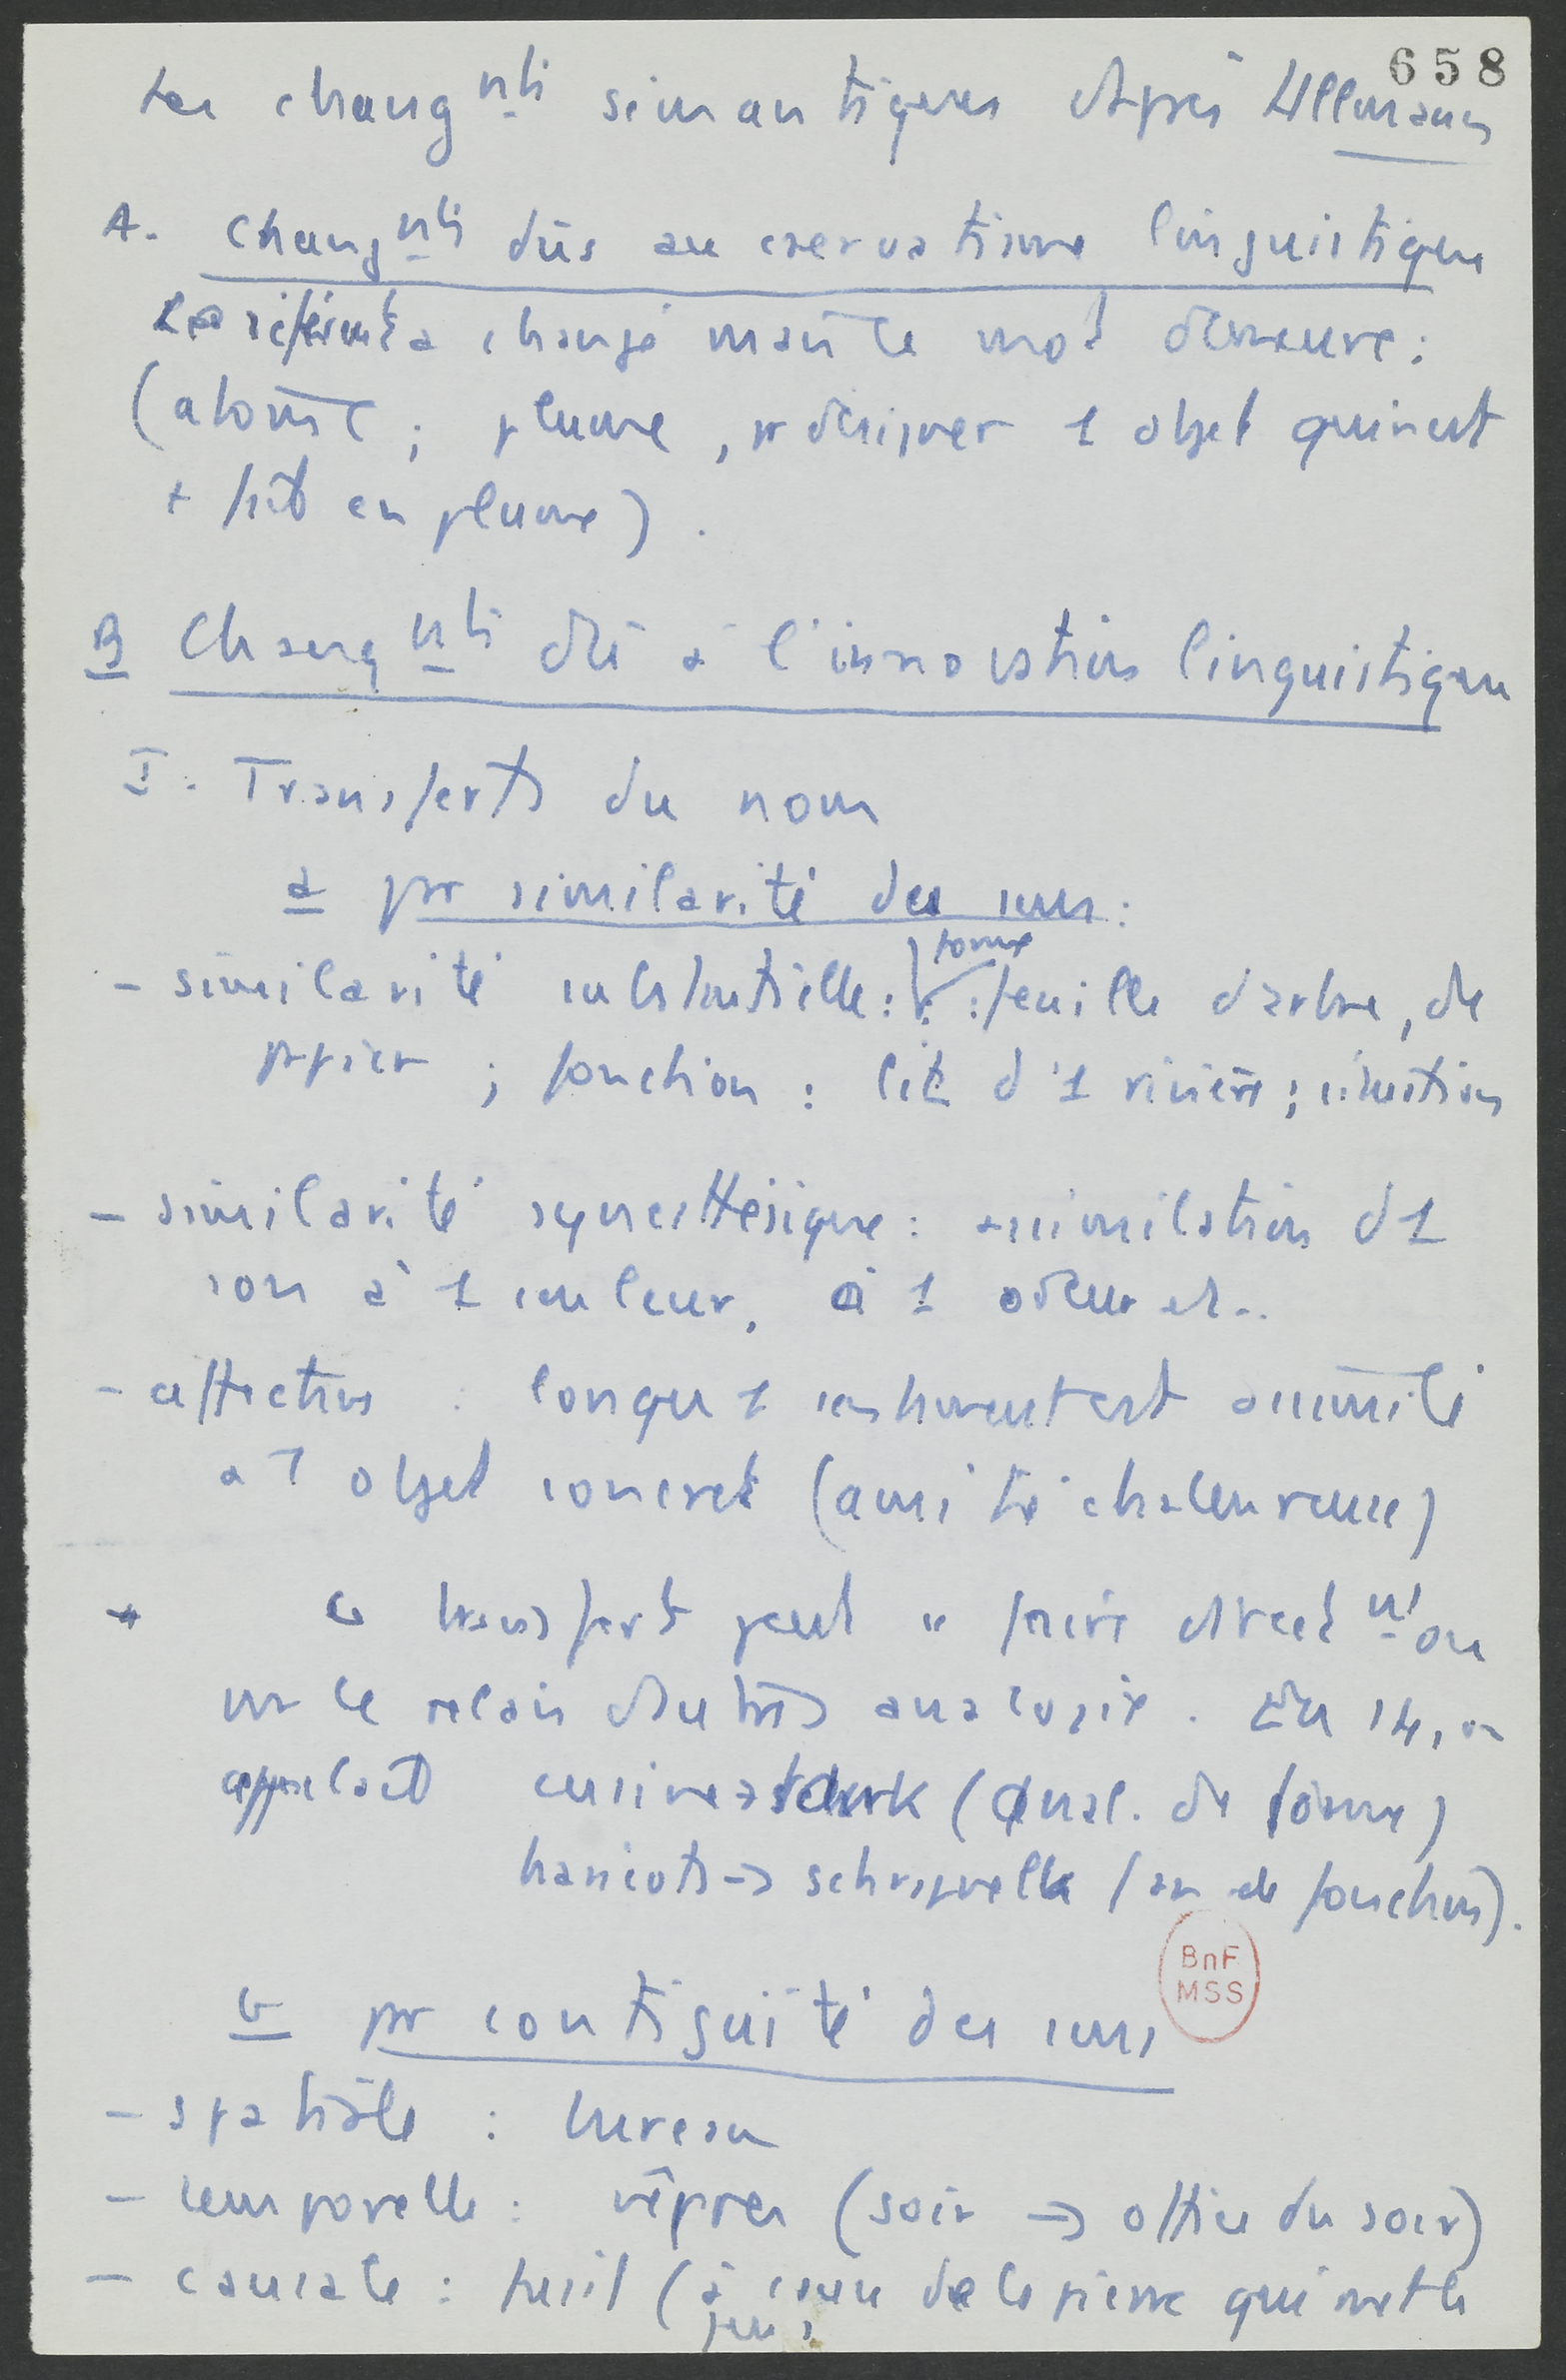 658
Les changnts sémantiques d'après Ullmann
A. Changnts dûs au conservatisme linguistique
Le référent a changé mais le mot demeure :
(atome ; plume, pr désigner 1 objet qui n'est
+ fait en plume).
B Changnts dû à l'innovation linguistique
I. Transferts du nom
a pr similarité des sens :
forme
- similarité substantielle : : feuille d'arbre, de
papier ; fonction : lit d'1 rivière ; situation
- similarité synesthésique : assimilation d'1
son à 1 couleur, à 1 odeur etc..
- affective : lorsque 1 sentiment est assimilé
à 1 objet concret (amitié chaleureuse)
Ce transfert peut se faire directnt ou
sur le relais d'autres analogies. En 14, on
appelait cuisine → tank (anal. de forme)
haricots → schrapnells (an de fonction).
b pr contiguïté des sens
BnF
MSS
- spatiale : bureau
- temporelle : vêpres (soir → office du soir)
- causale : fusil (à cause de la pierre qui met le
feu)